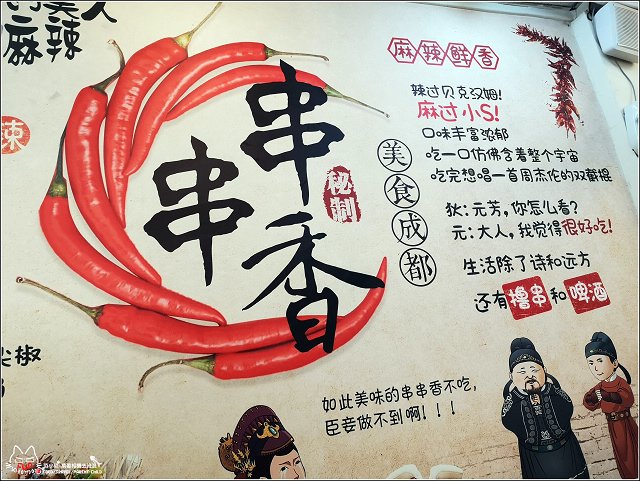 麻辣
人
束
串串香
秘制
麻辣鲜香
辣过贝克汉姆!
麻过小S!
口味丰富浓郁
吃一口仿佛含着整个宇宙
吃完想唱一首周杰伦的双截棍
美食成都
狄:元芳,你怎么看?
元:大人,我觉得很好吃!
生活除了诗和远方
还有撸串和啤酒
尖椒
如此美味的串串香不吃,
臣妾做不到啊!!!